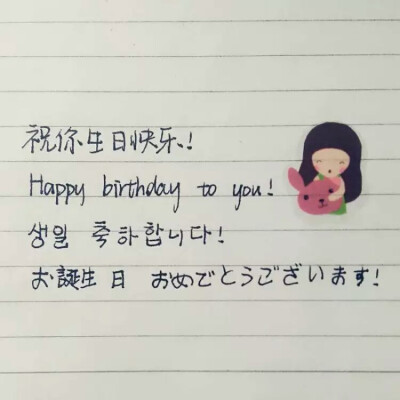 祝你生日快乐!
Happy birthday to you!
생일 축하합니다!
お誕生日 おめでとうございます!